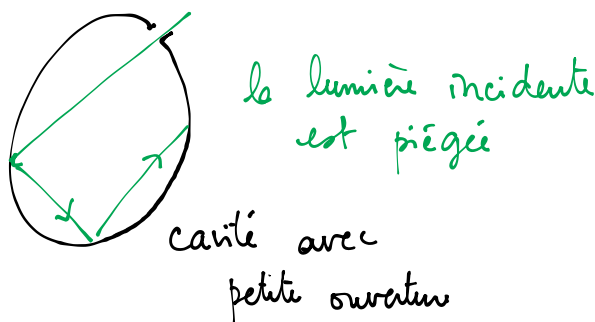 la lumière incidente
est piégée
cavité avec
petite ouverture